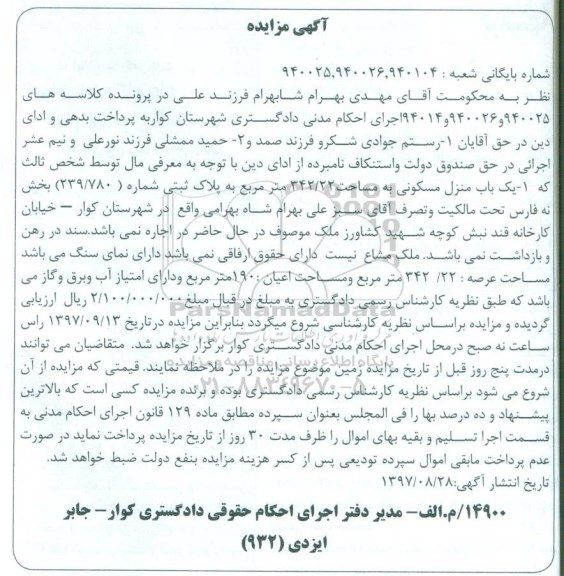 آگهی مزایده
شماره بایگانی شعبه : ۹۴۰۰۲۵,۹۴۰۰۲۶,۹۴۰۱۰۴
نظر به محکومت آقای مهدی بهرام شابهرام فرزند علی در پرونده کلاسه های
۹۴۰۰۲۵و۹۴۰۰۲۶و۹۴۰۱۴اجرای احکام مدنی دادگستری شهرستان کواربه پرداخت بدهی و ادای
دین در حق آقایان ۱-رستم جوادی شکرو فرزند صمد و۲- حمید ممشلی فرزند نورعلی و نیم عشر
اجرائی در حق صندوق دولت واستنکاف نامبرده از ادای دین با توجه به معرفی مال توسط شخص ثالث
که ۱-یک باب منزل مسکونی به مساحت۳۴۲/۲۲ متر مربع به پلاک ثبتی شماره ( ۲۳۹/۷۸۰) بخش
نه فارس تحت مالکیت وتصرف آقای سبز علی بهرام شاه بهرامی واقع در شهرستان کوار – خیابان
کارخانه قند نبش کوچه شهید کشاورز ملک موصوف در حال حاضر در اجاره نمی باشد.سند در رهن
و بازداشت نمی باشد. ملک مشاع نیست دارای حقوق ارفاقی نمی باشد دارای نمای سنگ می باشد
مساحت عرصه : ۲۲/ ۳۴۲ متر مربع ومساحت اعیان :۱۹۰متر مربع ودارای امتیاز آب وبرق وگاز می
باشد که طبق نظریه کارشناس رسمی دادگستری به مبلغ در قبال مبلغ۲/۱۰۰/۰۰۰/۰۰۰ ریال ارزیابی
گردیده و مزایده براساس نظریه کارشناسی شروع میگردد بنابراین مزایده درتاریخ ۱۳۹۷/۰۹/۱۳ راس
ساعت نه صبح درمحل اجرای احکام مدنی دادگستری کوار برگزار خواهد شد. متقاضیان می توانند
درمدت پنج روز قبل از تاریخ مزایده زمین موضوع مزایده را در ملاحظه نمایند. قیمتی که مزایده از آن
شروع می شود براساس نظریه کارشناس رسمی دادگستری بوده و برنده مزایده کسی است که بالاترین
پیشنهاد و ده درصد بها را فی المجلس بعنوان سپرده مطابق ماده ۱۲۹ قانون اجرای احکام مدنی به
قسمت اجرا تسلیم و بقیه بهای اموال را ظرف مدت ۳۰ روز از تاریخ مزایده پرداخت نماید در صورت
عدم پرداخت مابقی اموال سپرده تودیعی پس از کسر هزینه مزایده بنفع دولت ضبط خواهد شد.
تاریخ انتشار آگهی:۱۳۹۷/۰۸/۲۸
۱۴۹۰۰/م.الف- مدیر دفتر اجرای احکام حقوقی دادگستری کوار- جابر
ایزدی (۹۳۲)
ParsNamadData
پایگاه اطلاع رسانی مناقصه و مزایده
۰۲۱-۸۸۳۴۹۶۷۰-۵